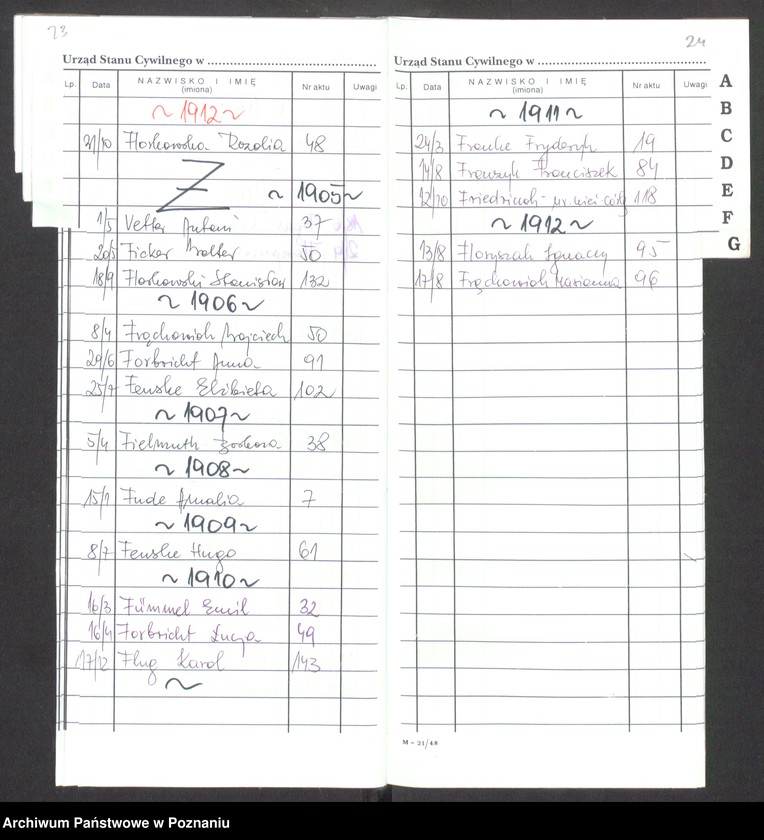 23
Urząd Stanu Cywilnego w
Lp. Data NAZWISKO I IMIĘ (imiona) Nr aktu Uwagi
~ 1912 ~
31/10 Florkowska Rozalia 48
Z ~ 1905 ~
1/5 Vetter 37
20/5 Ficker Walter 50
18/9 Florkowski Stanisław 132
~ 1906 ~
8/4 Frąckowiak Wojciech 50
29/6 Forbricht Anna 91
25/7 Fenske Elżbieta 102
~ 1907 ~
5/4 Fielmuth 38
~ 1908 ~
15/1 Fude Amalia 7
~ 1909 ~
8/7 Fenske Hugo 61
~ 1910 ~
16/3 Fümmel Emil 32
16/4 Forbricht Łucja 49
17/12 Flug Karol 143
~
24
Urząd Stanu Cywilnego w
Lp. Data NAZWISKO I IMIĘ (imiona) Nr aktu Uwagi
~ 1911 ~
24/3 Franke Fryderyk 19
14/8 Franczyk Franciszek 84
12/10 Friedrich - 118
~ 1912 ~
13/8 Floryszak Ignacy 95
17/8 Frąckowiak Marianna 96
M – 21/48
A
B
C
D
E
F
G
Archiwum Państwowe w Poznaniu